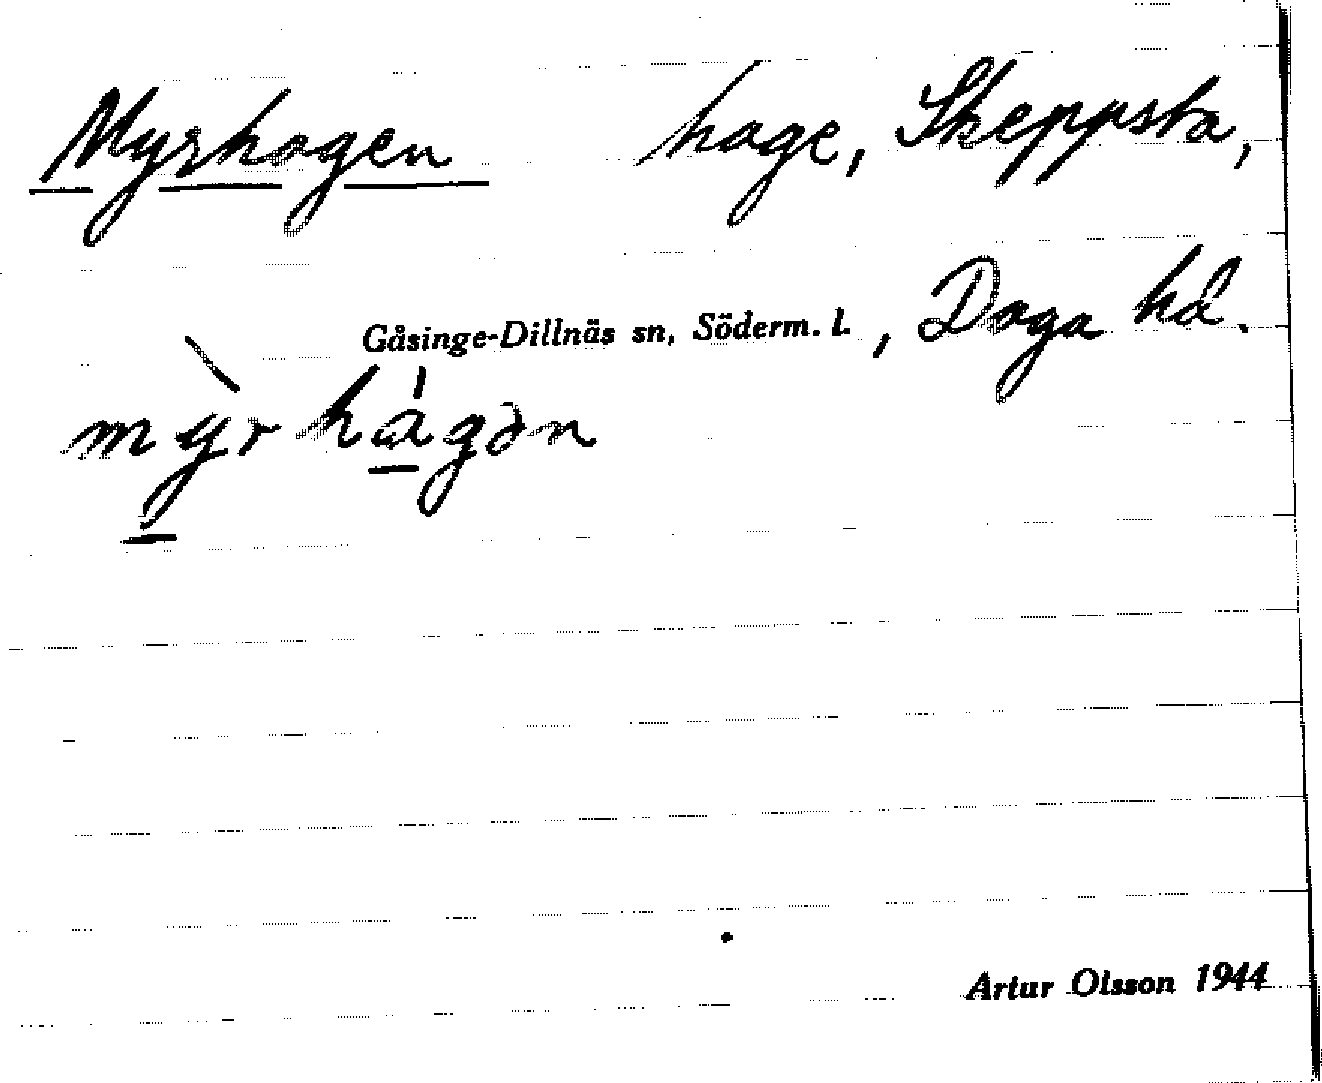 Myrhagen hage, Skeppsta,
Gåsinge-Dillnäs sn, Söderm. l., Daga hd.
mỳ̲rhá̲gən
Artur Olsson 1944